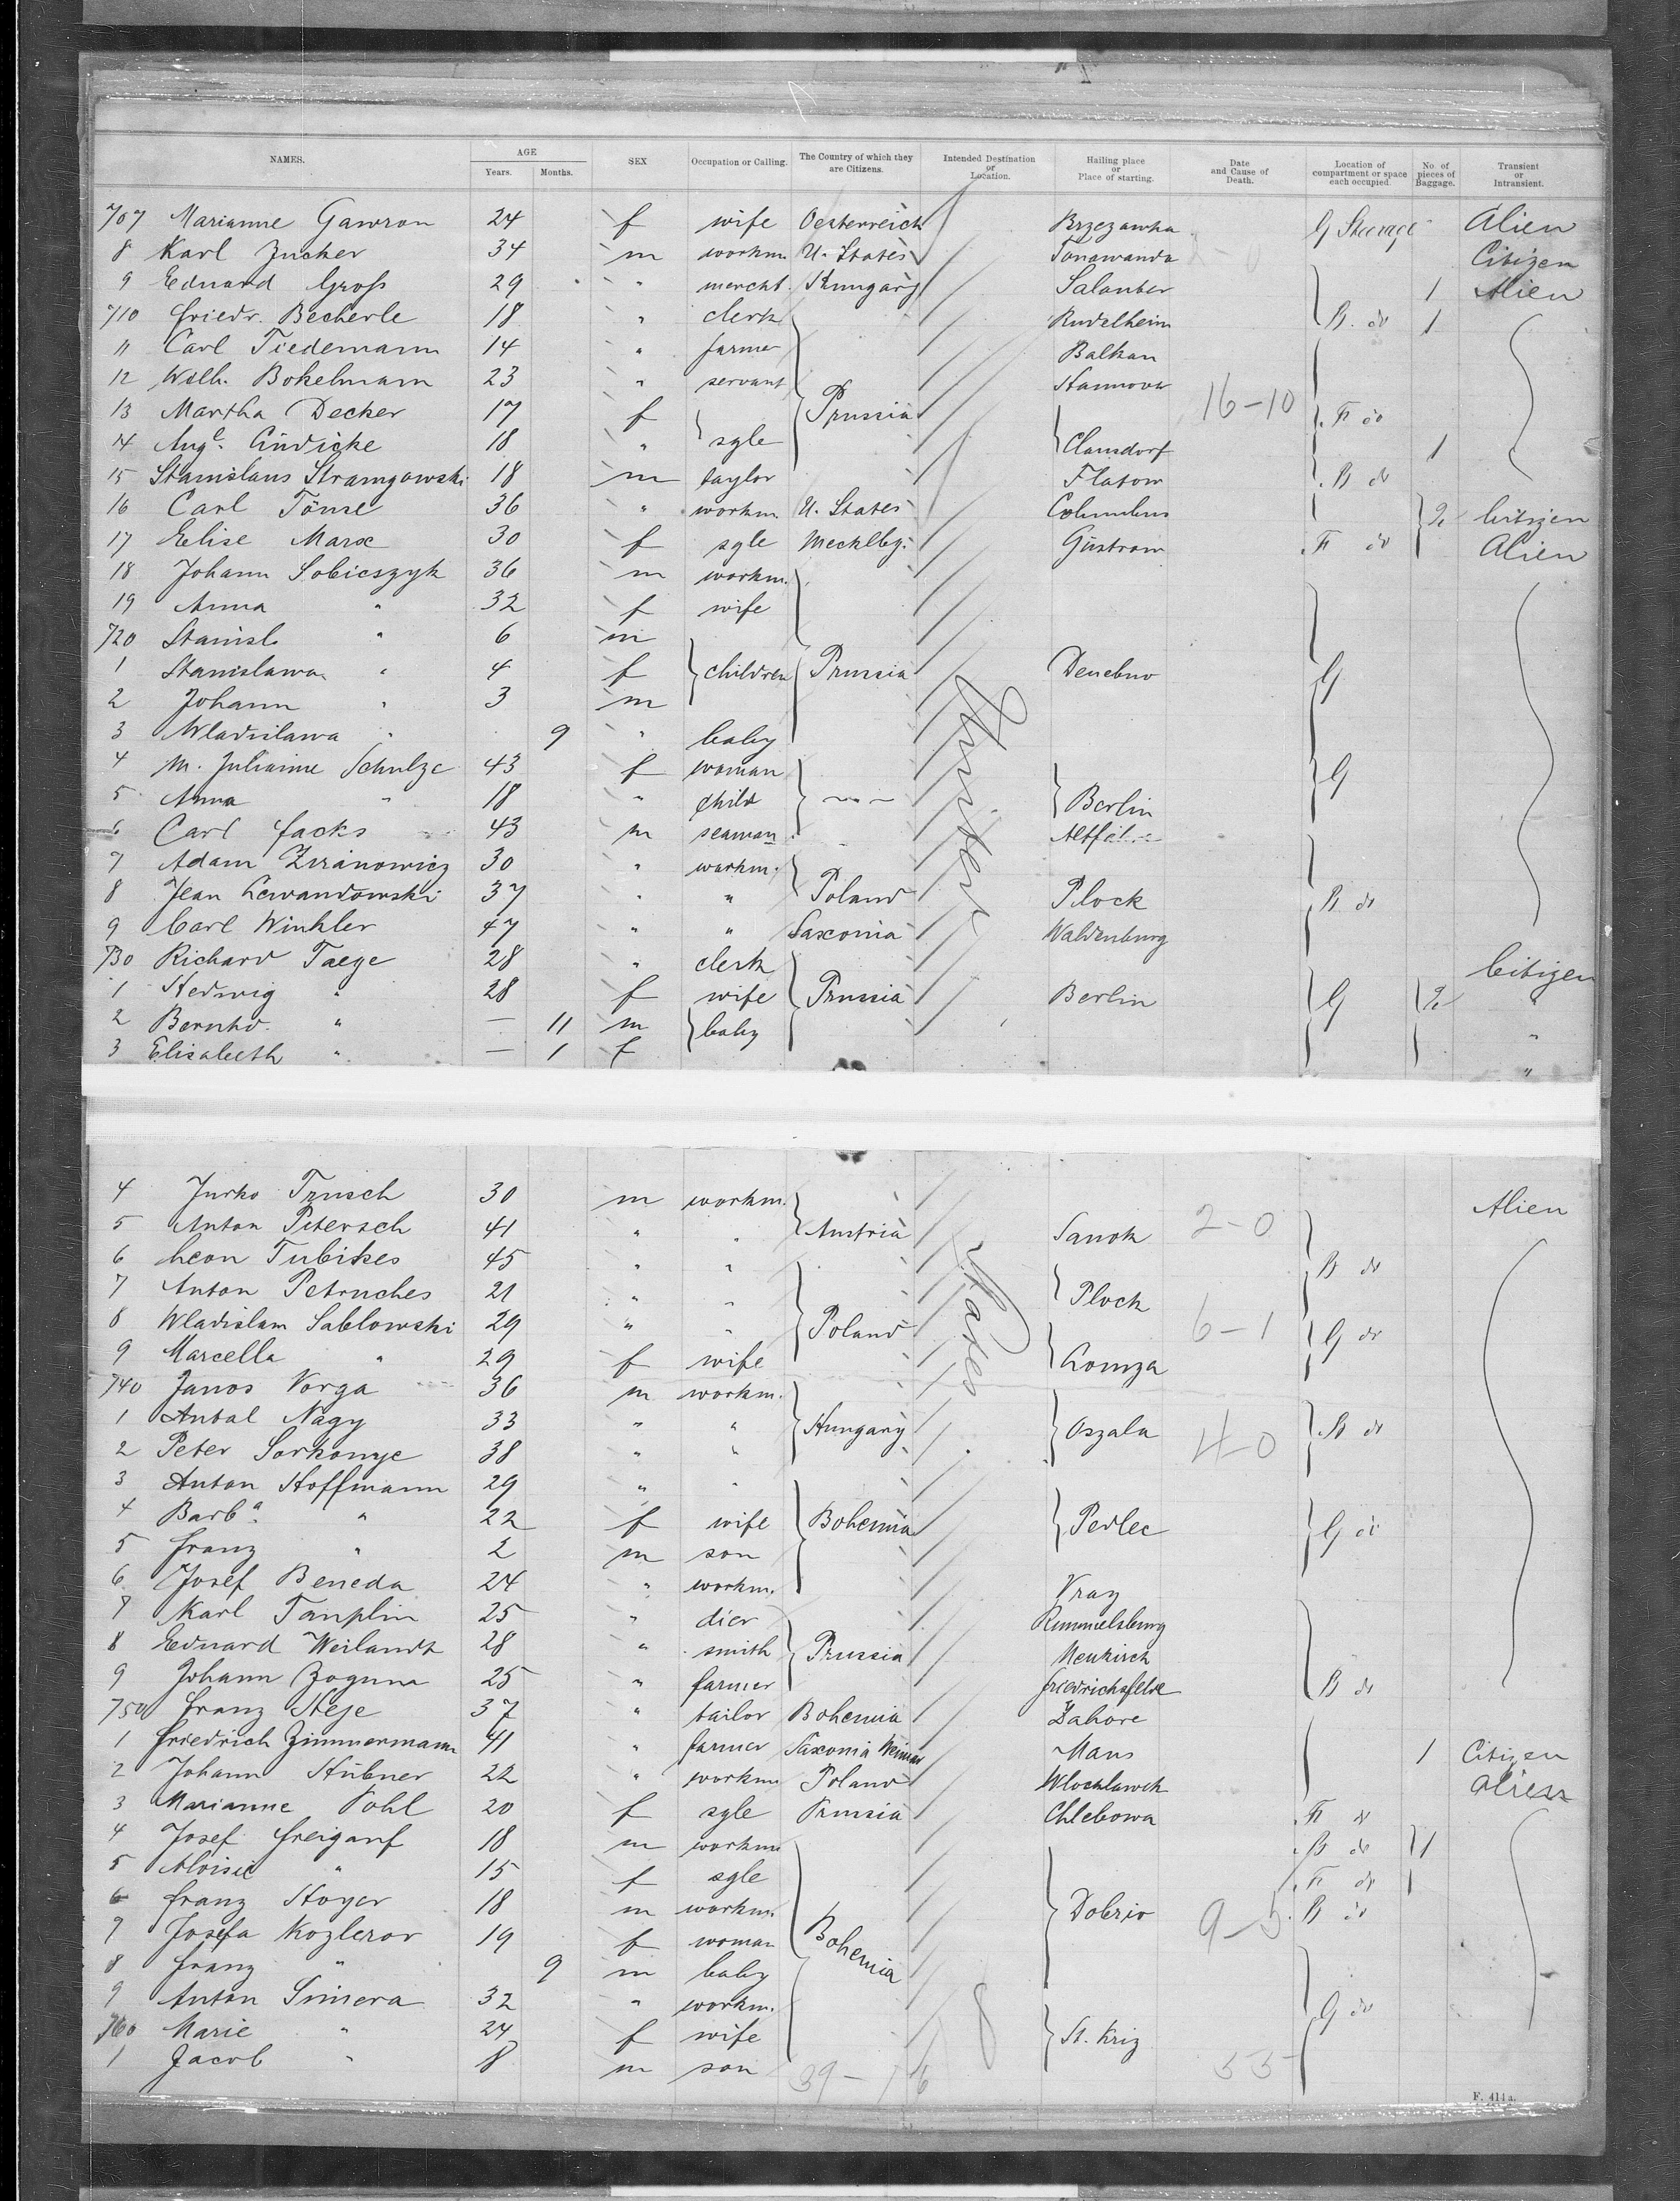 NAMES. AGE SEX Occupation or Calling. The Country of which they are Citizens. Intended Destination or Location. Hailing place or Place of starting. Date and Cause of Death. Location of compartment or space each occupied. No. of pieces of Baggage. Transient or Intransient.
Years. Months.
707 Marianne Gawron 24 f wife Oesterreich Brzezawka G Steerage Alien
8 Karl Zucker 34 m workm. U. States Tonawanda Citizen
9 Eduard Groß 29 " mercht. Hungary 1 Alien
710 Friedr. Becherle 18 " clerk Rudelheim B. do 1
11 Carl Tiedemann 14 " farmer Balkan
12 Wilh. Bokelmann 23 " servant Hannover 16-10
13 Martha Decker 17 f Prussia F do
14 Aug. 18 " sgle Clausdorf 1
15 Stanislaus Stramgowski 18 m taylor Flatow B do
16 Carl Tönse 36 " workm. U. States Columbus 2 Citizen
17 Elise Marx 30 f sgle Mecklbg. Güstrow F do Alien
18 Johann Sobieszyk 36 m workm.
19 Anna " 32 f wife
720 Stanisl. " 6 m
1 Stanislawa " 4 f children Prussia Denebno G
2 Johann " 3 m
3 Wladislawa " 9 " baby
4 M. Julianne Schulze 43 f woman G
5 Anna " 18 " child Berlin
6 Carl Jacks 43 m seaman
7 Adam 30 " workm.
8 Jean Lewandowski 37 " " Poland Plock B do
9 Carl Winkler 47 " " Saxonia Waldenburg
730 Richard Taege 28 " clerk Citizen
1 Hedwig " 28 f wife Prussia Berlin G 2 "
2 Bernhd. " — 11 m baby "
3 Elisabeth " — 1 f "
4 Jurko Trusch 30 m workm. Alien
5 Anton Petersch 41 " " Austria Sanok 2-0
6 Leon Tubikes 45 " " B do
7 Anton Petruches 21 " " Plock
8 Wladislaw Sablowski 29 " " Poland 6-1 G do
9 Marcella " 29 f wife Lomza
740 Janos Varga 36 m workm.
1 Antal Nagy 33 " " Hungary Oszala B do
2 Peter Sorkonye 38 " " 4-0
3 Anton Hoffmann 29 " "
4 Barba. " 22 f wife Bohemia Pedlec G do
5 Franz " 2 m son
6 Josef Beneda 24 " workm. Vraz
7 Karl Tanplin 25 " dier Rummelsburg
8 Eduard Weilandt 28 " smith Prussia Neukirch
9 Johann Zoguna 25 " farmer Friedrichsfelde B do
750 Franz Steje 37 " tailor Bohemia Zahore
1 Friedrich Zimmermann 41 " farmer Saxonia Weimar Mans 1 Citizen
2 Johann Hübner 22 " workm. Poland Wloclawek Alien
3 Marianne Pohl 20 f sgle Prussia Chlebowa F do
4 Josef Freiganf 18 m workm. B do 1
5 Aloisie " 15 f sgle F do
6 Franz Stoyer 18 m workm. Dobriv B do
7 Josefa Kozlerov 19 f woman Bohemia 9-5
8 Franz " 9 m baby
9 Anton Simera 32 " workm. G do
760 Marie " 24 f wife St. Kriz
1 Jacob " 8 m son 39-16 55
States
F. 411a.